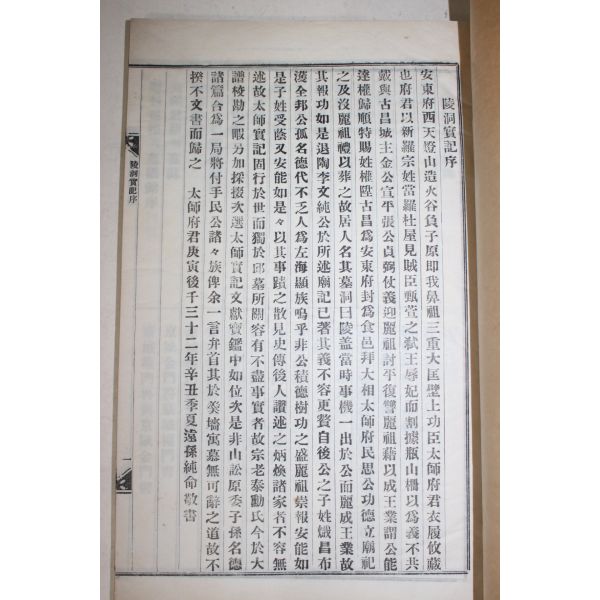 陵洞實記序
安東府西天燈山造火谷負子原即我鼻祖三重大匡壁上功臣太師府君衣履攸藏
也府君以新羅宗姓當羅社屋見賊臣甄萱之弑王辱妃而割據瓶山柵以爲義不共
戴與古昌城主金公宣平張公貞弼仗義迎麗祖討平復讐麗祖藉以成王業謂公能
達權歸順特賜姓權陞古昌爲安東府封爲食邑拜大相太師府民思公功德立廟祀
之及沒麗祖禮以葬之故居人名其墓洞曰陵盖當時事機一出於公而麗成王業故
其報功如是退陶李文純公於所述廟記已著其義不容更贅自後公之子姓熾昌布
濩全邦公孤名德代不乏人爲左海顯族嗚乎非公積德樹功之盛麗祖崇報安能如
是子姓受蔭又安能如是々以其事蹟之散見史傳後人讚述之炳煥諸家者不容無
述故太師實記固行於世而獨於邱墓所關容有不盡事實者故宗老泰勳氏今於大
譜校勘之暇另加採掇次選太師實記文獻寶鑑中如位次是非山訟原委子孫名德
諸篇合爲一局將付手民公諸々族俾余一言弁首其於羹墻寓慕無可辭之道故不
揆不文書而歸之 太師府君庚寅後千三十二年辛丑季夏遠孫純命敬書
陵洞實記序
一